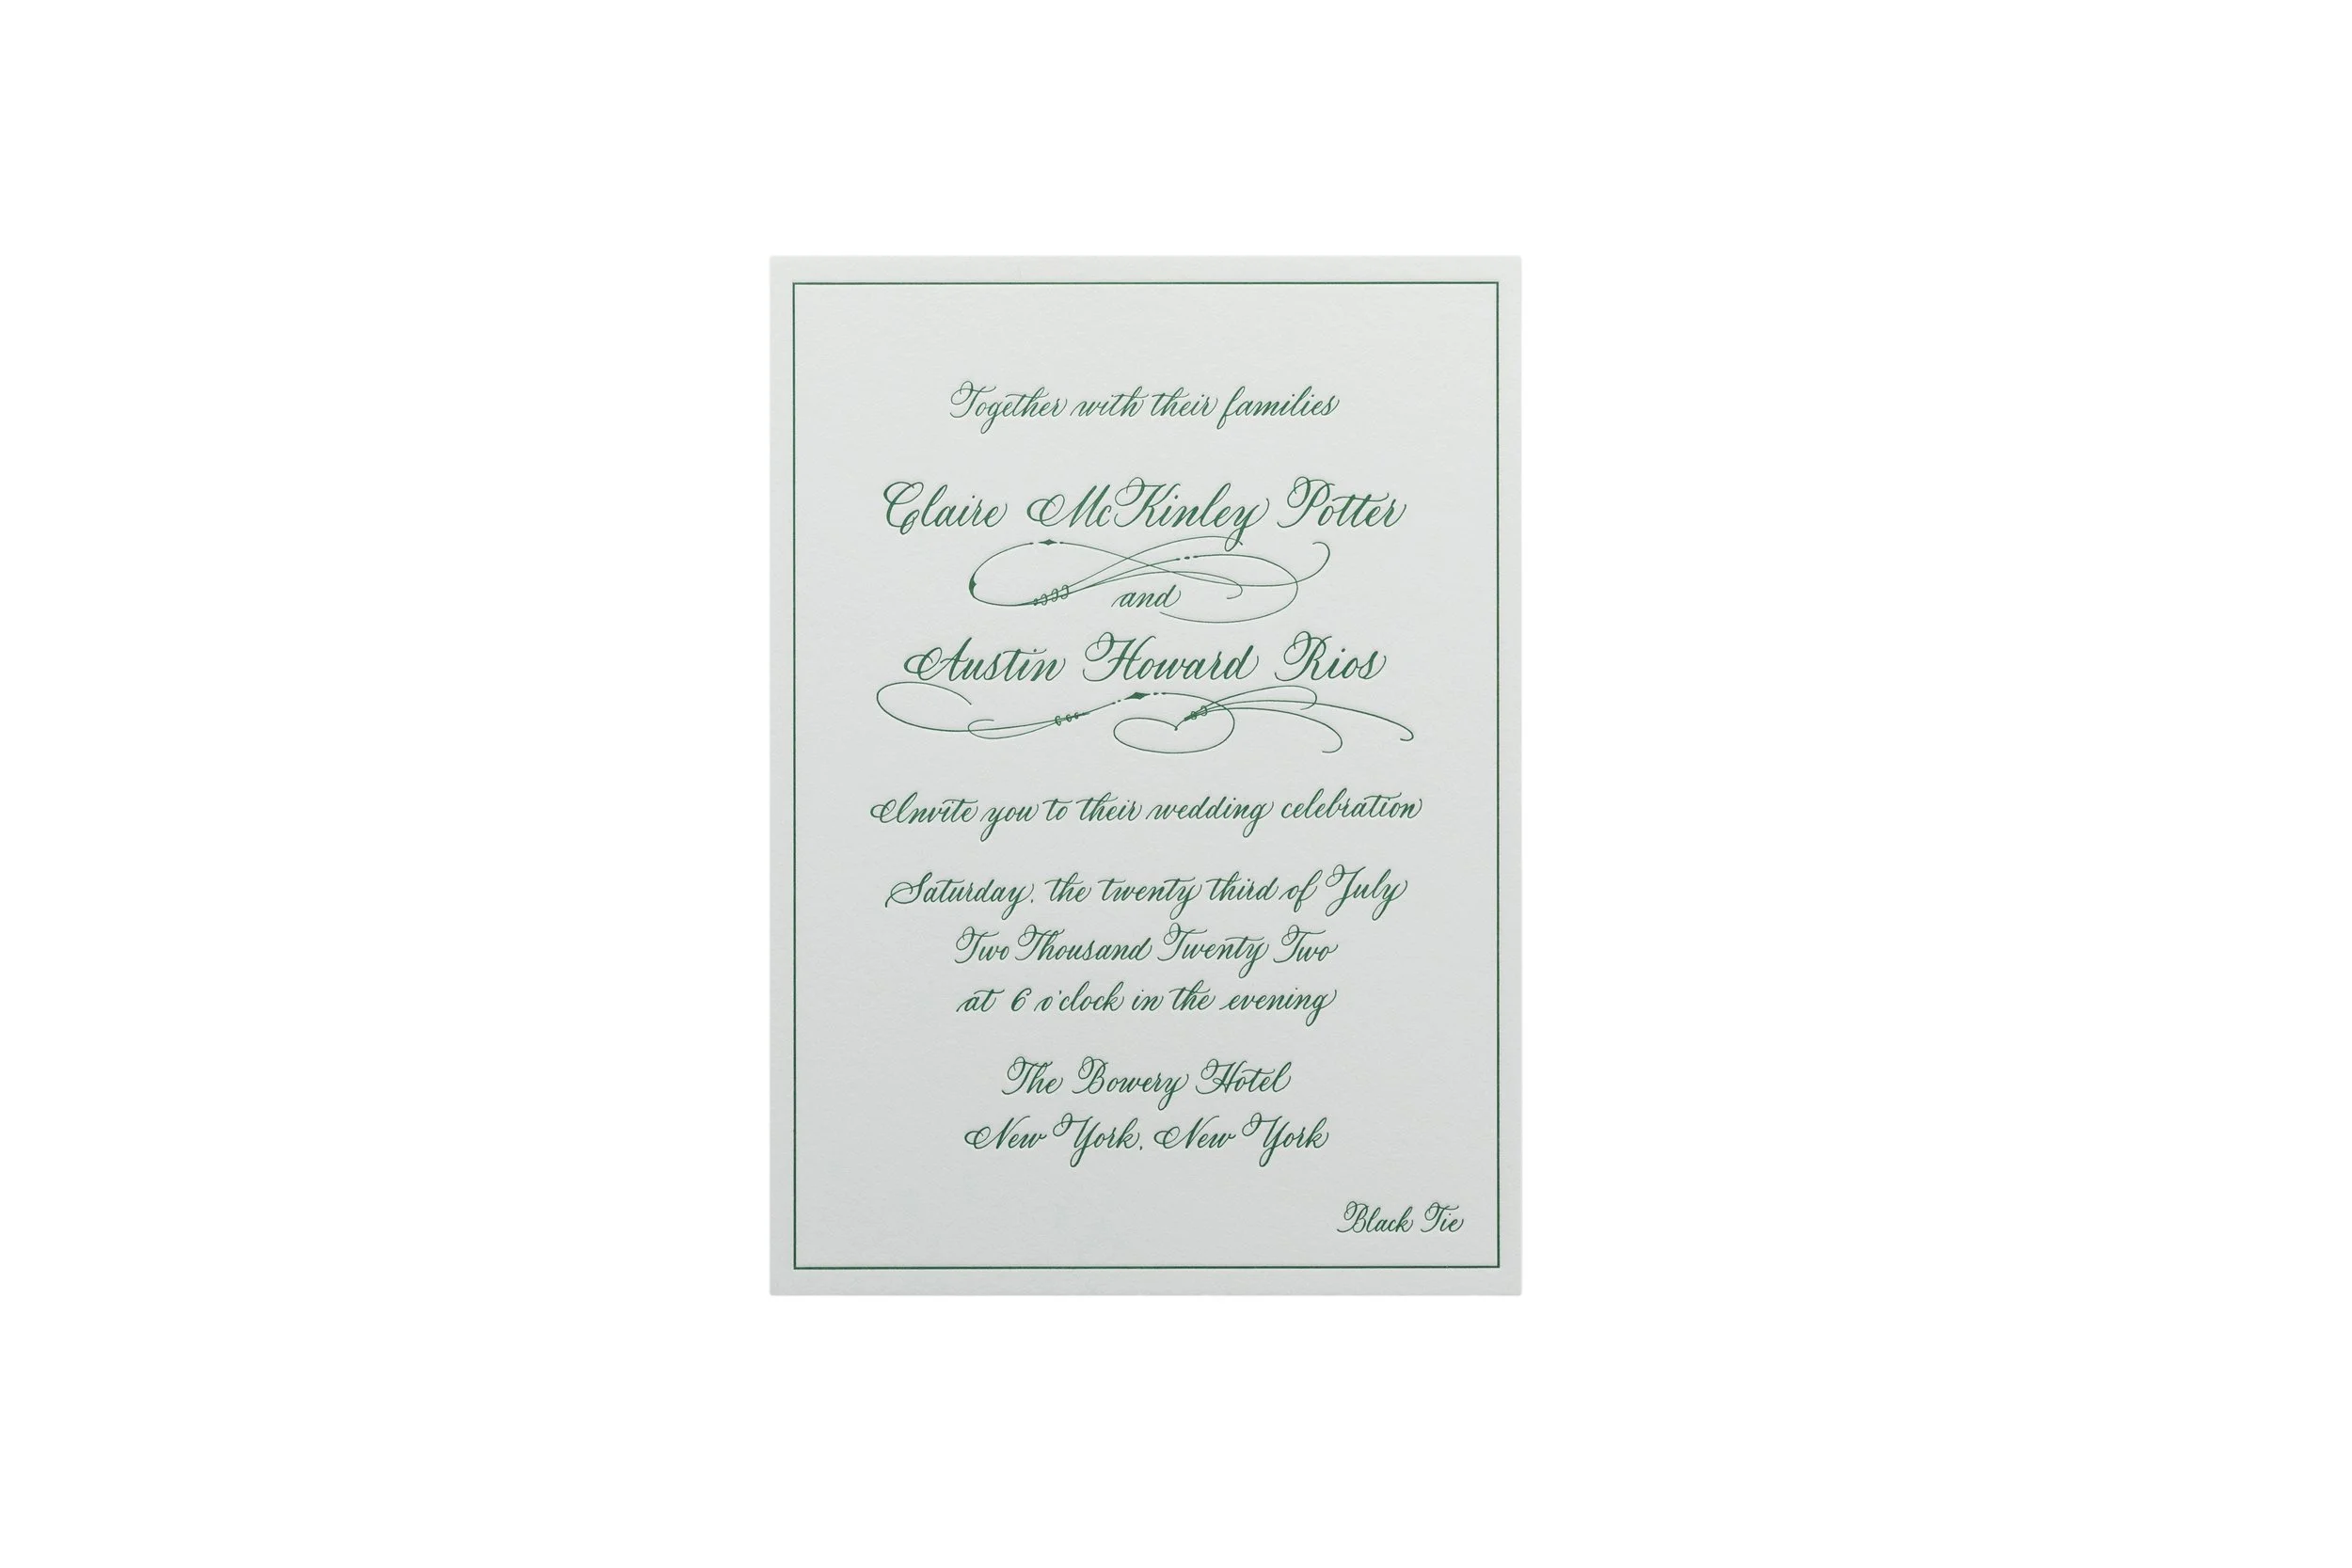 Together with their families
Claire McKinley Potter
and
Austin Howard Rios
Invite you to their wedding celebration
Saturday, the twenty third of July
Two Thousand Twenty Two
at 6 o'clock in the evening
The Bowery Hotel
New York, New York
Black Tie